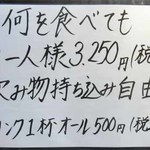 何を食べても
一人様3.250円(税
飲み物持ち込み自由
ンク1杯オール500円(税